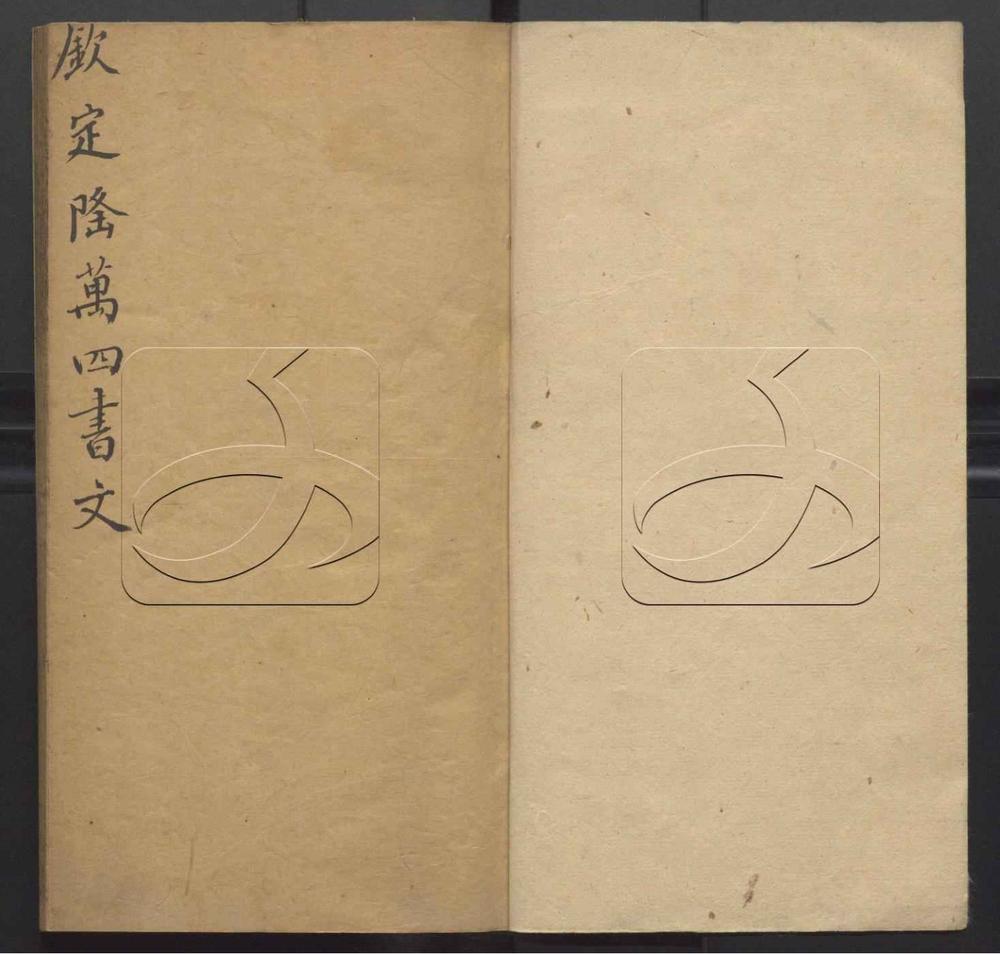 欽定隆萬四書文